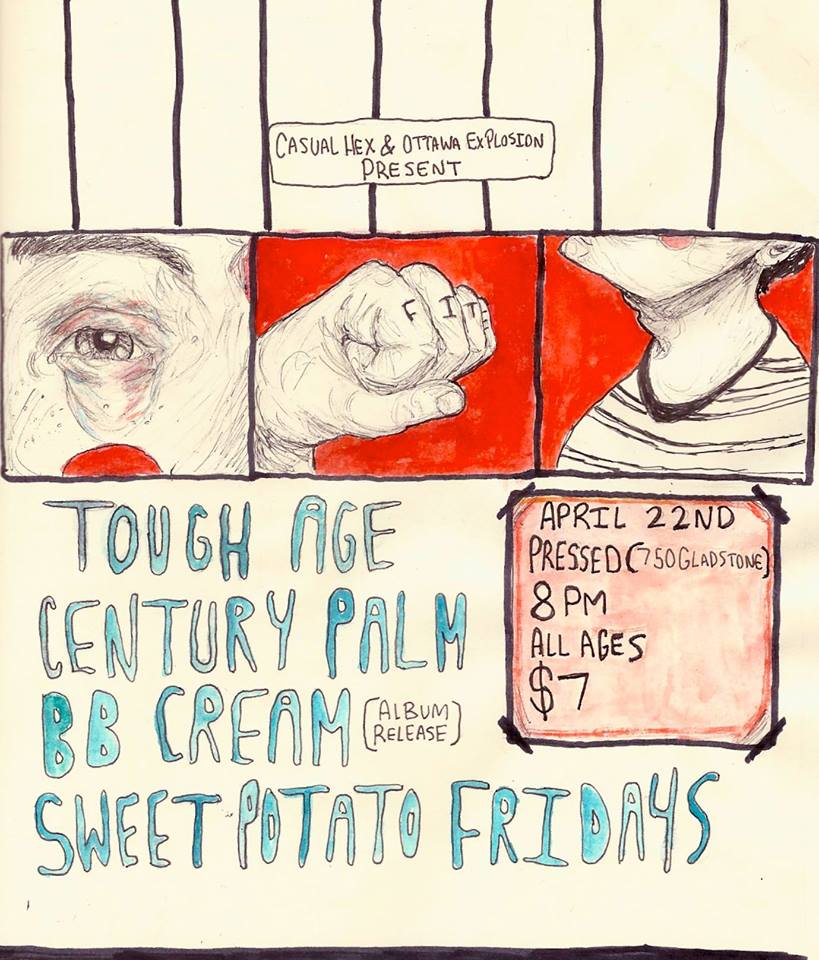 CASUAL HEX & OTTAWA EXPLOSION
PRESENT
FITE
TOUGH AGE
CENTURY PALM
BB CREAM
[ALBUM
RELEASE]
SWEET POTATO FRIDAYS
APRIL 22ND
PRESSED (750 GLADSTONE)
8 PM
ALL AGES
$7